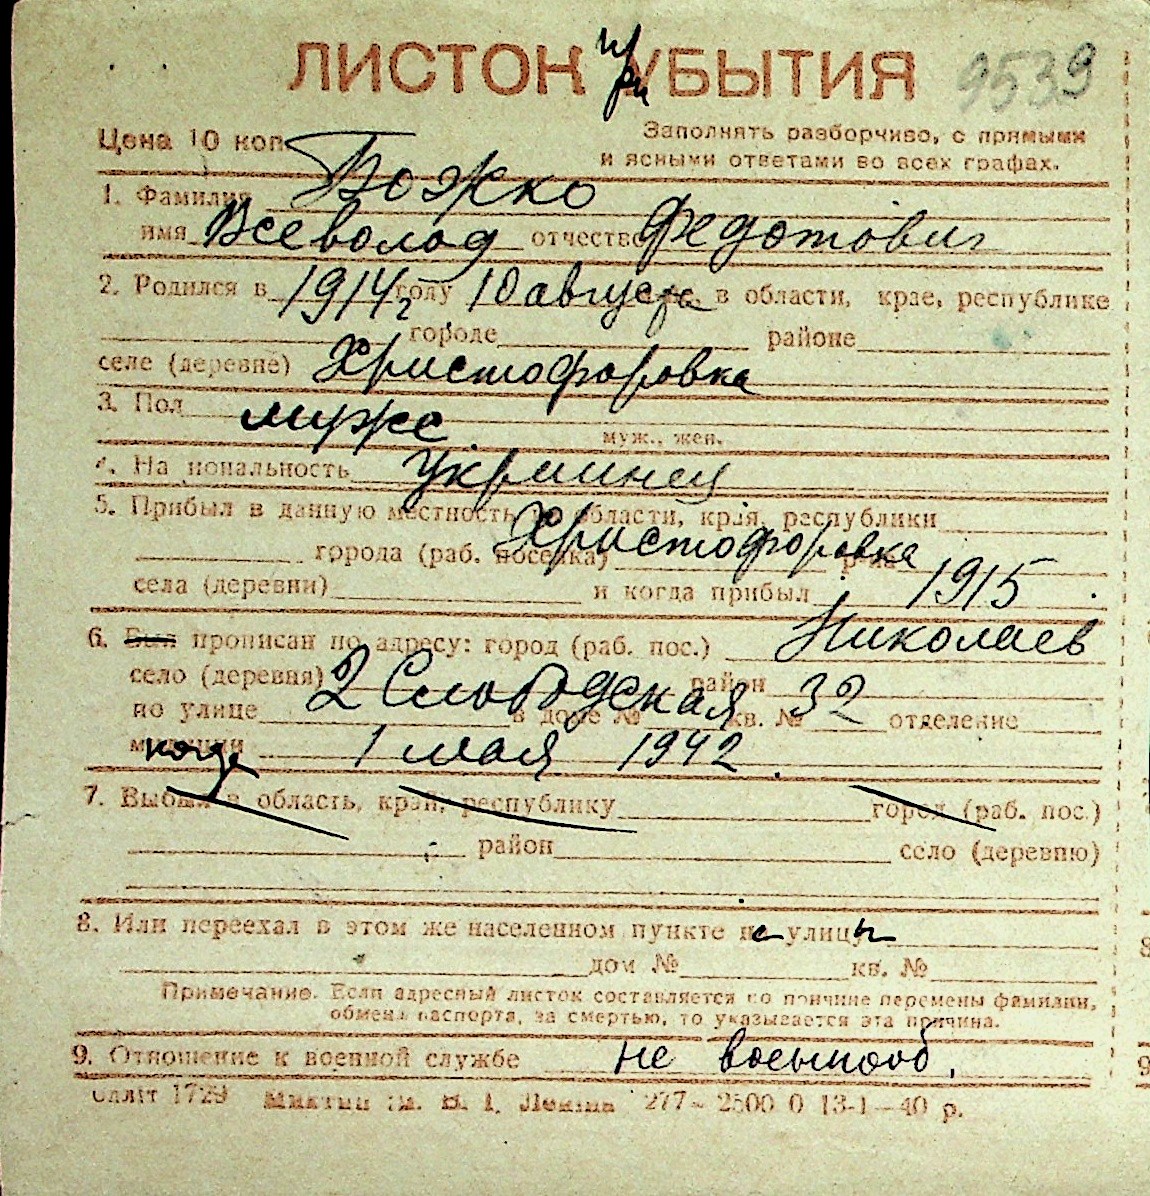 ЛИСТОК при УБЫТИЯ 9539
Цена 10 коп
Заполнять разборчиво, с прямыми
и ясными ответами во всех графах.
1. Фамилия Божко
имя Всеволод отчество Федотович
2. Родился в 1914 г году 10 августа в области, крае, республике
городе районе
селе (деревне) Христофоровка
3. Пол мужс
муж., жен.
4. На иональность украинец
5. Прибыл в данную местность из области, края, республики
города (раб. поселка) Христофоровка р-на
села (деревни) и когда прибыл 1915
6. Был прописан по адресу: город (раб. пос.) Николаев
село (деревня) район
по улице 2 Слободская в доме № кв. № 32 отделение
милиции когда 1 мая 1942.
7. Выбыл в область, край, республику город (раб. пос.)
район село (деревню)
8. Или переехал в этом же населенном пункте с улицы
дом № кв. №
Примечание. Если адресный листок составляется по причине перемены фамилии,
обмена паспорта, за смертью, то указывается эта причина.
9. Отношение к военной службе не военнооб.
1729 им. В. І. Леніна 277–2500 0 13-1–40 р.